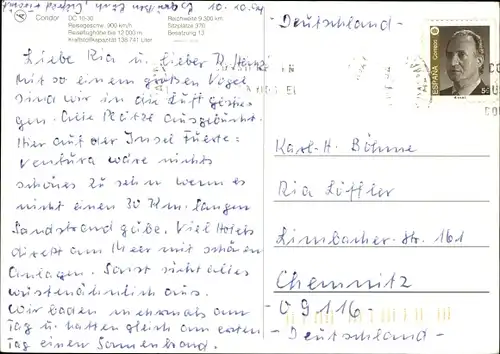 Condor
DC 10-30
Reisegeschw. 900 km/h
Reiseflughöhe bis 12 000 m
Kraftstoffkapazität 138 741 Liter
Reichweite 9 300 km
Sitzplätze 370
Besatzung 13
10.94
Liebe Ria u. lieber K. Heinz
Mit so einem großen Vogel
sind wir in die Luft gestie-
gen. Alle Plätze ausgebucht.
Hier auf der Insel Fuerte-
ventura wäre nichts
schönes zu sehn wenn es
nicht einen 30 Km. langen
Sandstrand gäbe. Viel Hotels
direkt am Meer mit schönen
Anlagen. Sonst sieht alles
wüstenähnlich aus.
Wir baden mehrmals am
Tag u. hatten gleich am ersten
Tag einen Sonnenbrand.
- Deutschland -
ESPAÑA
Correos
Karl-H. Böhme
Ria Löffler
Limbacher-Str. 161
Chemnitz
- 09116 -
- Deutschland -